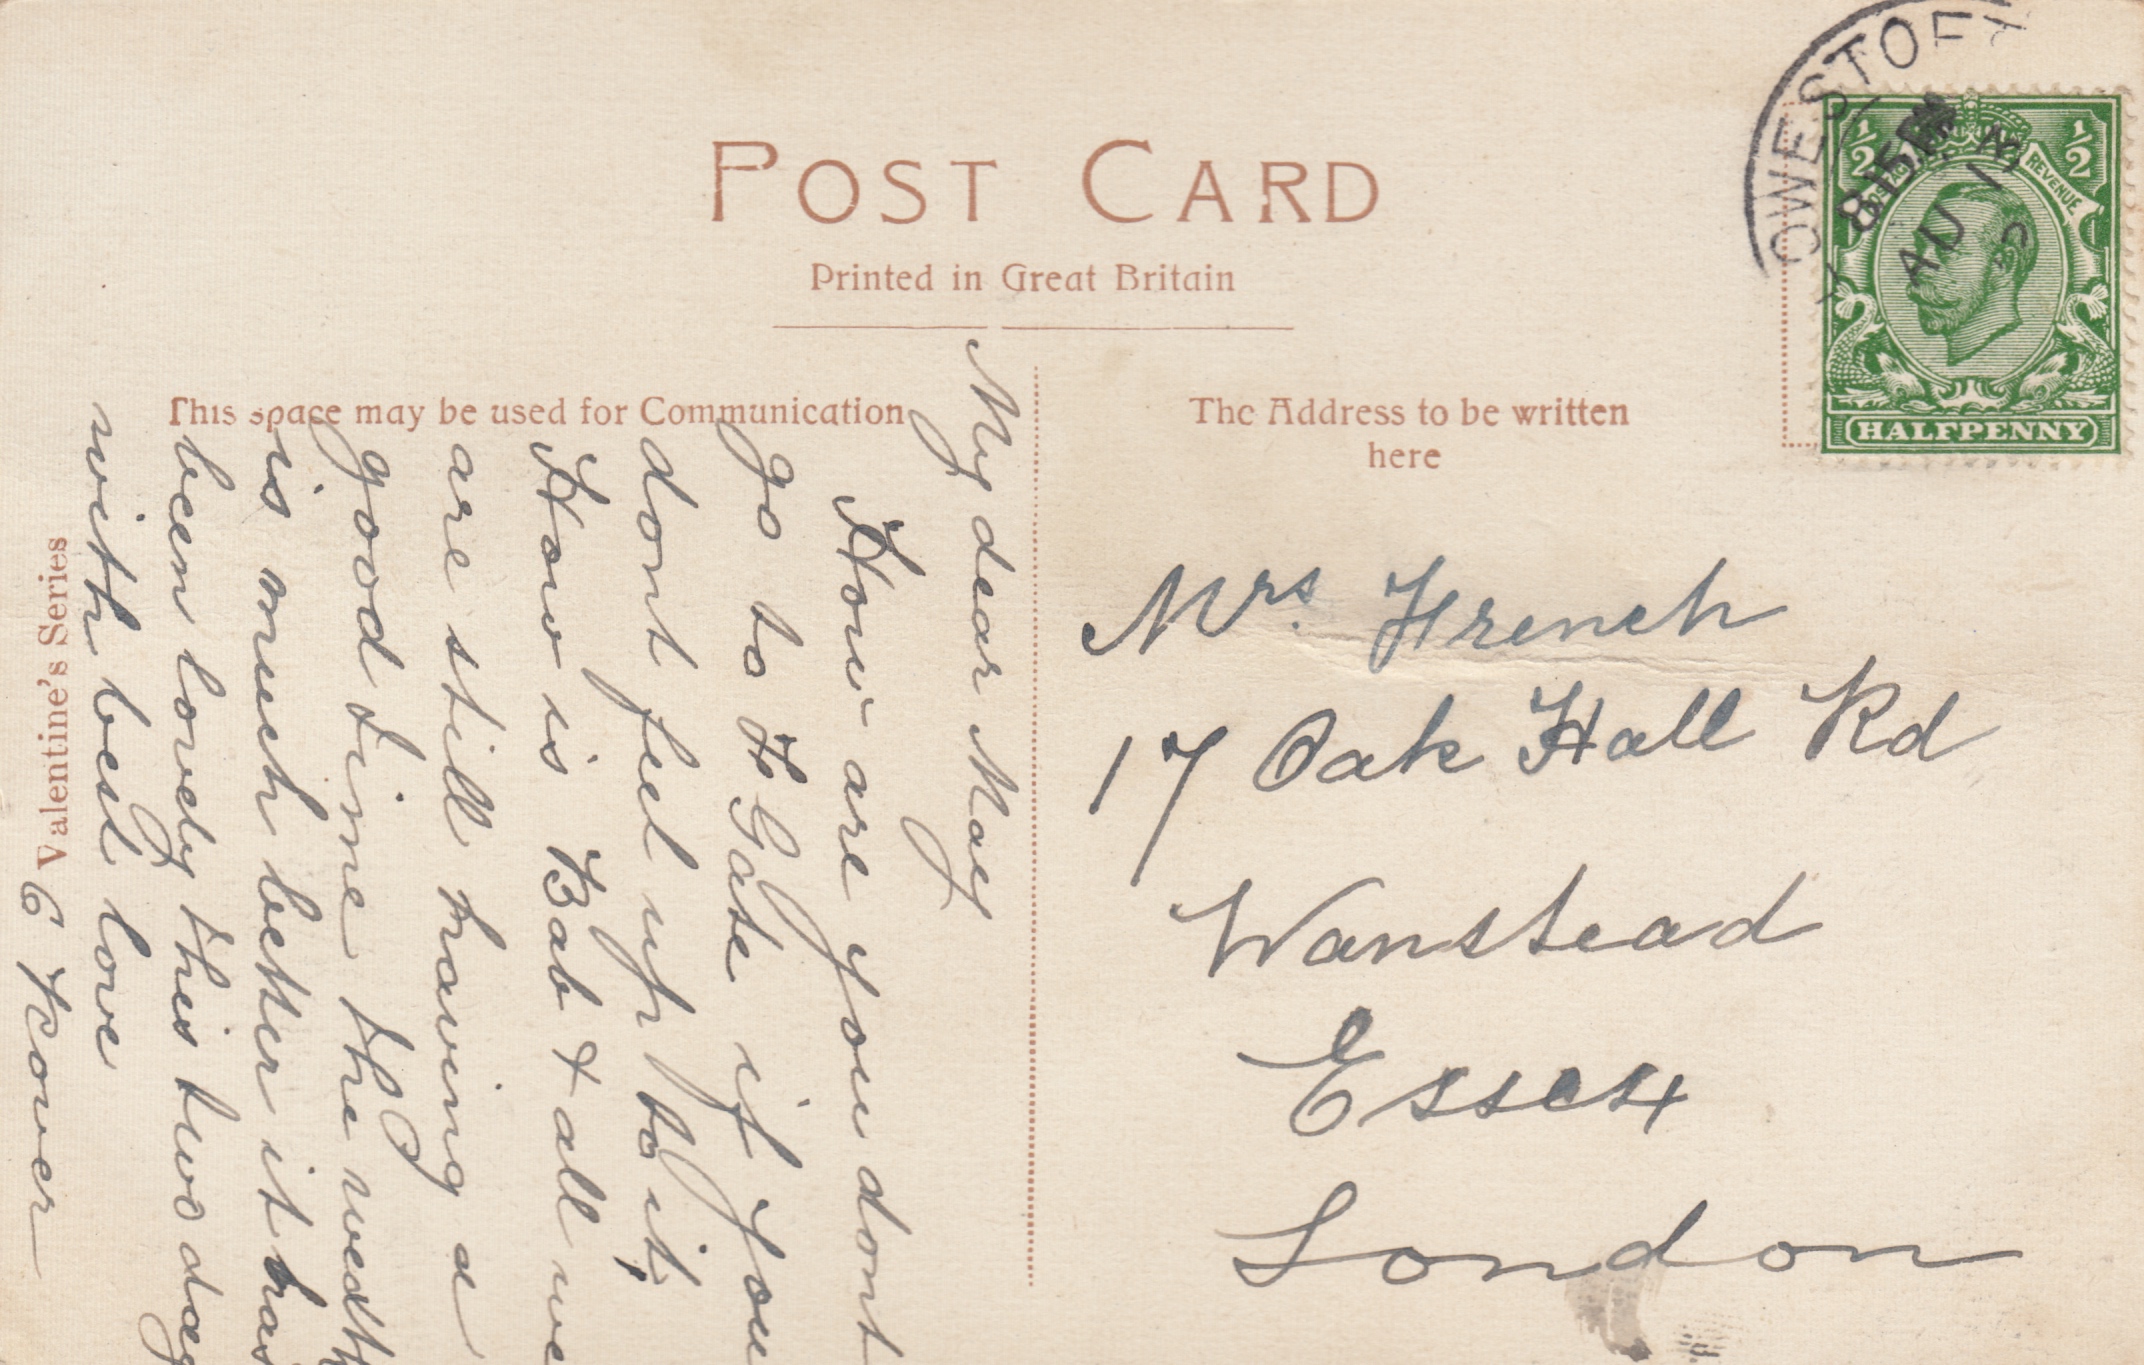 POST CARD
Printed in Great Britain
This space may be used for Communication
The Address to be written
here
Valentine's Series
LOWESTOFT
8 15 PM
AU 13
½ ½
POSTAGE REVENUE
HALFPENNY
My dear May
How are you dont
go to F Gate if you
dont feel up to it,
How is Bab & all we
are still having a
good time the weath
is much better it has
been lovely this two day
with best love
C Rower
Mrs. French
17 Oak Hall Rd
Wanstead
Essex
London